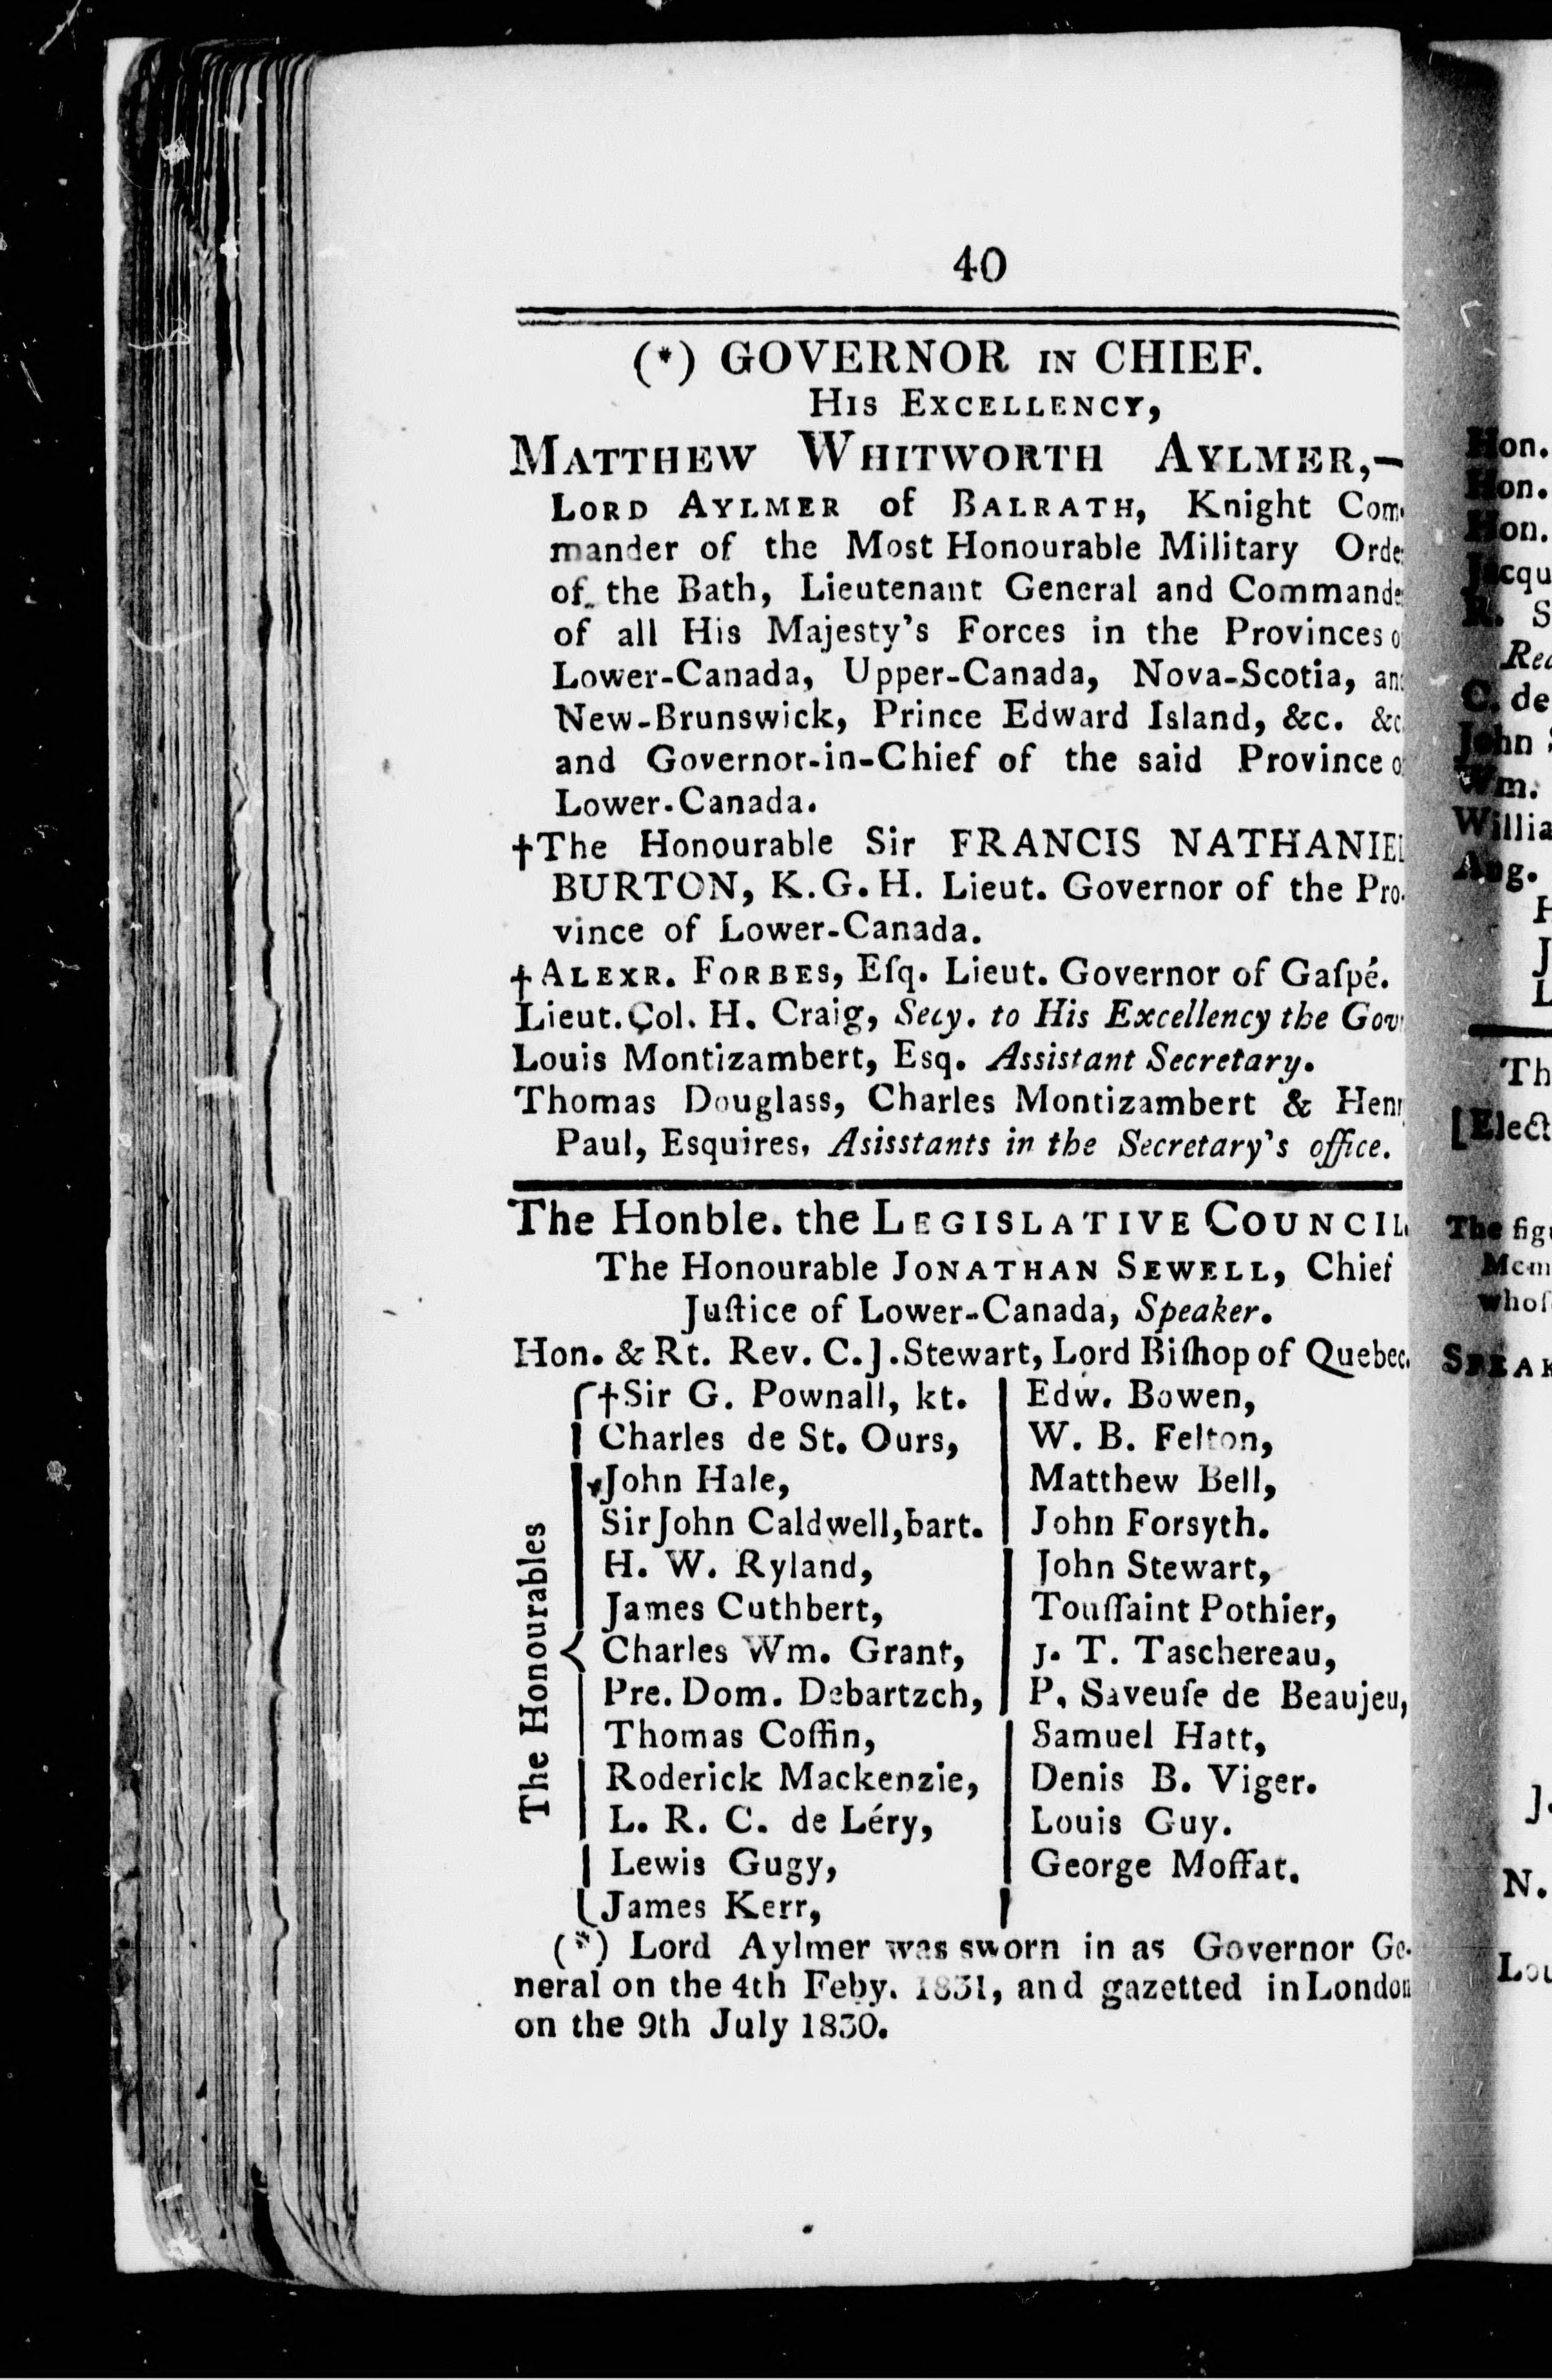 40
(*) GOVERNOR IN CHIEF.
HIS EXCELLENCY,
MATTHEW WHITWORTH AYLMER,—
LORD AYLMER of BALRATH, Knight Com-
mander of the Most Honourable Military Orde
of the Bath, Lieutenant General and Commande
of all His Majesty's Forces in the Provinces o
Lower-Canada, Upper-Canada, Nova-Scotia, an
New-Brunswick, Prince Edward Island, &c. &c
and Governor-in-Chief of the said Province o
Lower-Canada.
†The Honourable Sir FRANCIS NATHANIEL
BURTON, K.G.H. Lieut. Governor of the Pro-
vince of Lower-Canada.
†ALEXR. FORBES, Eſq. Lieut. Governor of Gaſpé.
Lieut. Col. H. Craig, Secy. to His Excellency the Gov
Louis Montizambert, Esq. Assistant Secretary.
Thomas Douglass, Charles Montizambert & Henr
Paul, Esquires, Asisstants in the Secretary's office.
The Honble. the LEGISLATIVE COUNCIL.
The Honourable JONATHAN SEWELL, Chief
Juſtice of Lower-Canada, Speaker.
Hon. & Rt. Rev. C.J. Stewart, Lord Biſhop of Quebec.
The Honourables
†Sir G. Pownall, kt.
Charles de St. Ours,
John Hale,
Sir John Caldwell, bart.
H. W. Ryland,
James Cuthbert,
Charles Wm. Grant,
Pre. Dom. Debartzch,
Thomas Coffin,
Roderick Mackenzie,
L. R. C. de Léry,
Lewis Gugy,
James Kerr,
Edw. Bowen,
W. B. Felton,
Matthew Bell,
John Forsyth.
John Stewart,
Touſſaint Pothier,
J. T. Taschereau,
P. Saveuſe de Beaujeu,
Samuel Hatt,
Denis B. Viger.
Louis Guy.
George Moffat.
(*) Lord Aylmer was sworn in as Governor Ge-
neral on the 4th Feby. 1831, and gazetted in London
on the 9th July 1830.
Hon.
Hon.
Hon.
C. de
John
Wm.
Aug.
Th
The
N.